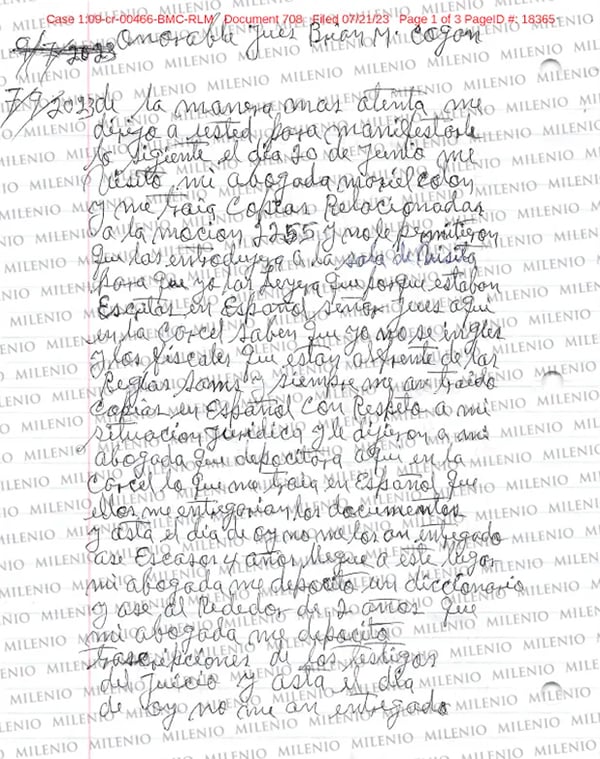 Case 1:09-cr-00466-BMC-RLM Document 708 Filed 07/21/23 Page 1 of 3 PageID #: 18365
Onorable Jues Brian M. Cogan
7/7/2023 de la manera mas atenta me
dirijo a usted para manifestarle
lo sigiente el dia 20 de junio me
visito mi abogada mariel colon
y me traia Copias Relacionadas
a la mocion 2255 y no le permitieron
que las introdujera a la sala de visita
para que yo las Leyera que porque estaban
Escritas en Español señor jues aqui
en la Carcel saben que yo no se ingles
y los fiscales que estan al frente de las
Reglas sams y siempre me an traido
copias en Español Con Respeto a mi
situacion juridica y le dijeron a mi
abogada que depocitara aqui en la
Carcel lo que me traia en Español que
ellos me entregarian los documentos
y asta el dia de oy no me los an entregado
ase Escasos y años llegue a este lugar
mi abogada me deposito un diccionario
y ase al Rededor de 2 años que
mi abogada me depocito
trascripciones de los testigos
del juicio y asta el dia
de oy no me an entregado
MILENIO